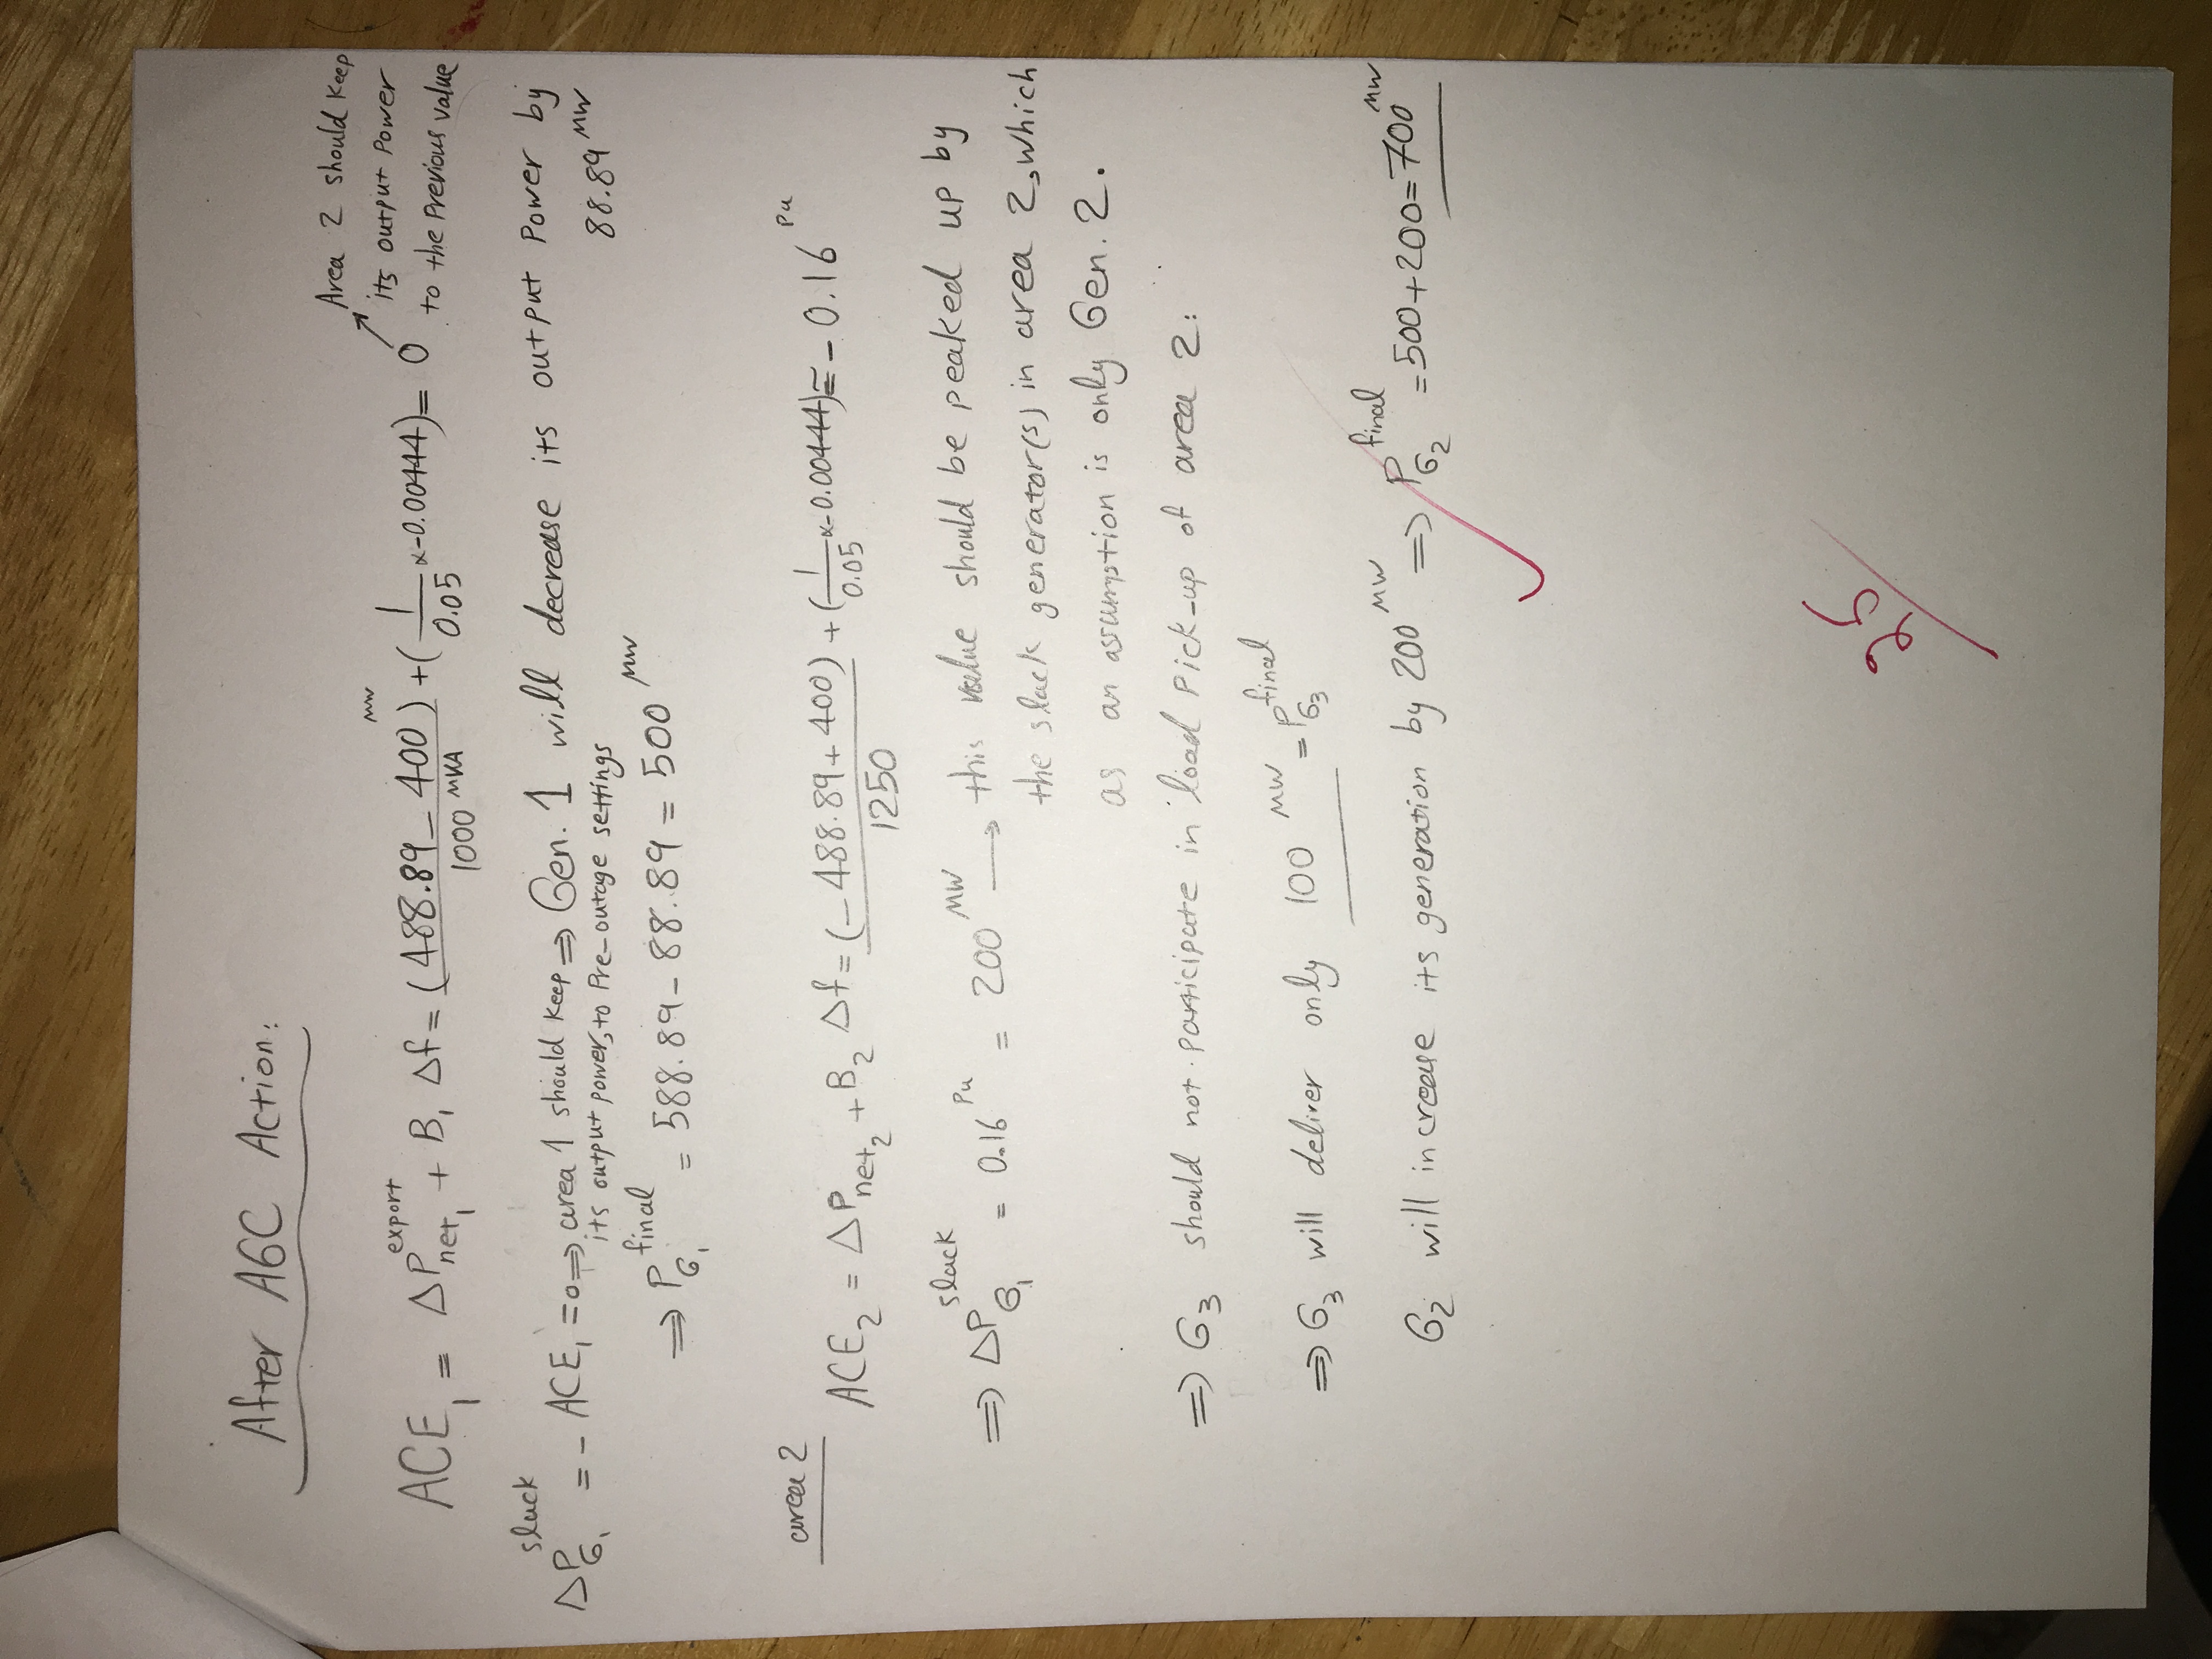 After AGC Action:
Area 2 should keep
its output power
to the previous value
ACE₁ = ΔP_net₁^export + B₁ Δf = (488.89 - 400)^MW / 1000^MVA + (1/0.05 × -0.00444) = 0
ΔP_G₁^slack = - ACE₁ = 0 ⇒ area 1 should keep ⇒ Gen. 1 will decrease its output power by
its output power, to Pre-outage settings 88.89 MW
⇒ P_G₁^final = 588.89 - 88.89 = 500 MW
area 2
ACE₂ = ΔP_net₂ + B₂ Δf = (-488.89 + 400) / 1250 + (1/0.05 × -0.00444) = - 0.16 Pu
⇒ ΔP_G₁^slack = 0.16 Pu = 200 MW → this value should be peaked up by
the slack generator(s) in area 2, which
as an assumption is only Gen. 2.
⇒ G₃ should not participate in load Pick-up of area 2:
⇒ G₃ will deliver only 100 MW = P_G₃^final
G₂ will increase its generation by 200 MW ⇒ P_G₂^final = 500+200=700 MW
25